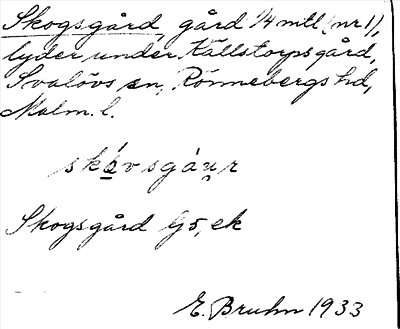 Skogsgård, gård 1/4 mtl (nr 1),
lyder under Källstorpsgård,
Svalövs sn, Rönnebergs hd,
Malm. l.
Skogsgård G5, ek
E. Bruhn 1933